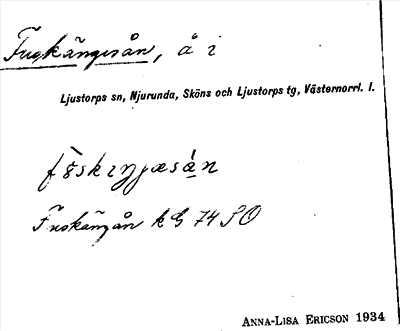 Fuskängsån, å i
Ljustorps sn, Njurunda, Sköns och Ljustorps tg, Västernorrl. l.
Fuskängån kG 74 SO
ANNA-LISA ERICSON 1934